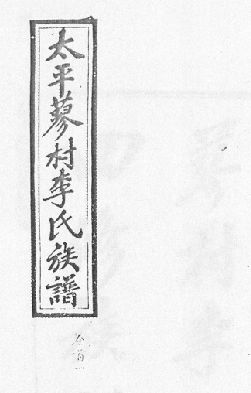 太平蓼村李氏族譜